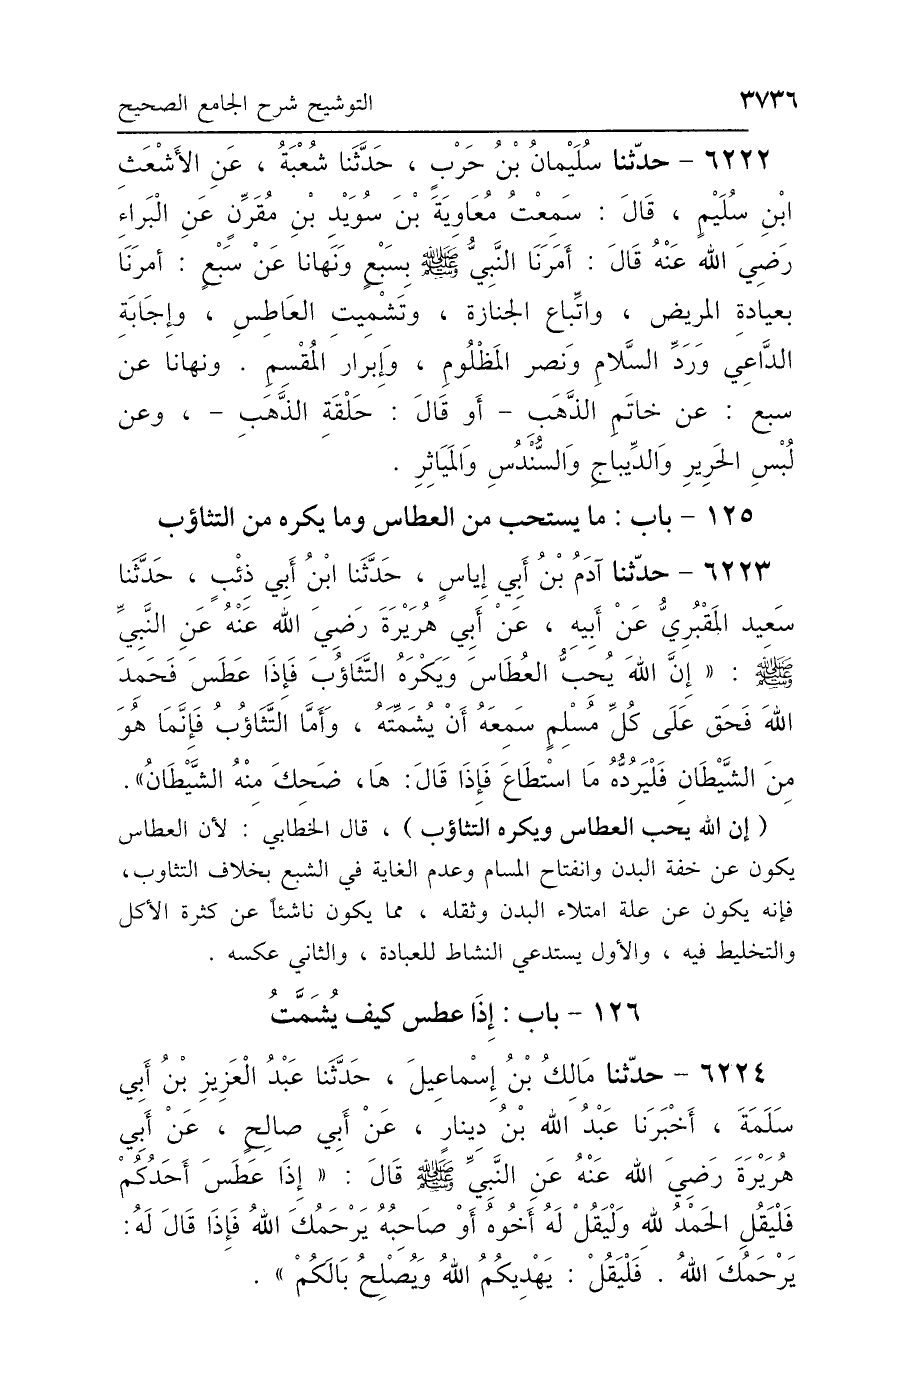 ٣٧٣٦ التوشيح شرح الجامع الصحيح
٦٢٢٢ - حدّثنا سُلَيْمانُ بْنُ حَرْبٍ ، حَدَّثَنا شُعْبَةُ ، عَنِ الأَشْعَثِ
ابْنِ سُلَيْمٍ ، قَالَ : سَمِعْتُ مُعَاوِيَةَ بْنَ سُوَيْدِ بْنِ مُقَرِّنٍ عَنِ الْبَراءِ
رَضِيَ اللهُ عَنْهُ قَالَ : أَمَرَنَا النَّبِيُّ ﷺ بِسَبْعٍ ونَهانا عَنْ سَبْعٍ : أمرَنَا
بعيادة المريض ، واتِّباع الجنازة ، وتَشْميتِ العَاطِسِ ، وإجَابَةِ
الدَّاعِي وَرَدِّ السَّلامِ وَنصر المَظْلُومِ ، وَإبرار المُقْسِمِ . ونهانا عن
سبع : عن خاتَمِ الذَّهَبِ - أو قَالَ : حَلْقَةِ الذَّهَبِ - ، وعن
لُبْسِ الحَرِيرِ وَالدِّيباجِ وَالسُّنْدُسِ وَالمَيَاثِرِ .
١٢٥ - باب : ما يستحب من العطاس وما يكره من التثاؤب
٦٢٢٣ - حدّثنا آدَمُ بْنُ أَبِي إياسٍ ، حَدَّثَنَا ابْنُ أَبِي ذِئْبٍ ، حَدَّثَنا
سَعِيد المَقْبُرِيُّ عَنْ أَبِيهِ ، عَنْ أَبِي هُرَيْرَةَ رَضِيَ اللهُ عَنْهُ عَنِ النَّبِيِّ
ﷺ : « إنَّ اللهَ يُحِبُّ العُطَاسَ وَيَكْرَهُ التَّثاؤُبَ فَإِذَا عَطَسَ فَحَمِدَ
اللهَ فَحَق عَلَى كُلِّ مُسْلِمٍ سَمِعَهُ أَنْ يُشَمِّتَهُ ، وَأَمَّا التَّثَاؤُبُ فَإنَّمَا هُوَ
مِنَ الشَّيْطَانِ فَلْيَرُدُّهُ مَا اسْتَطَاعَ فَإذَا قَالَ: هَا، ضَحِكَ مِنْهُ الشَّيْطَانُ».
( إن الله يحب العطاس ويكره التثاؤب ) ، قال الخطابي : لأن العطاس
يكون عن خفة البدن وانفتاح المسام وعدم الغاية في الشبع بخلاف التثاوب،
فإنه يكون عن علة امتلاء البدن وثقله ، مما يكون ناشئاً عن كثرة الأكل
والتخليط فيه ، والأول يستدعي النشاط للعبادة ، والثاني عكسه .
١٢٦ - باب : إذَا عطس كيف يُشَمَّتُ
٦٢٢٤ - حدّثنا مَالِكُ بْنُ إِسْماعِيلَ ، حَدَّثَنا عَبْدُ الْعَزِيزِ بْنُ أَبِي
سَلَمَةَ ، أَخْبَرَنَا عَبْدُ اللهِ بْنُ دِينارٍ ، عَنْ أَبِي صالِحٍ ، عَنْ أَبِي
هُرَيْرَةَ رَضِيَ اللهُ عَنْهُ عَنِ النَّبِيِّ ﷺ قَالَ : « إذَا عَطَسَ أَحَدُكُمْ
فَلْيَقُلِ الحَمْدُ للهِ وَلْيَقُلْ لَهُ أَخُوهُ أَوْ صَاحِبُهُ يَرْحَمُكَ اللهُ فَإِذَا قَالَ لَهُ:
يَرْحَمُكَ اللهُ . فَلْيَقُلْ : يَهْدِيكُمُ اللهُ وَيُصْلِحُ بَالَكُمْ » .